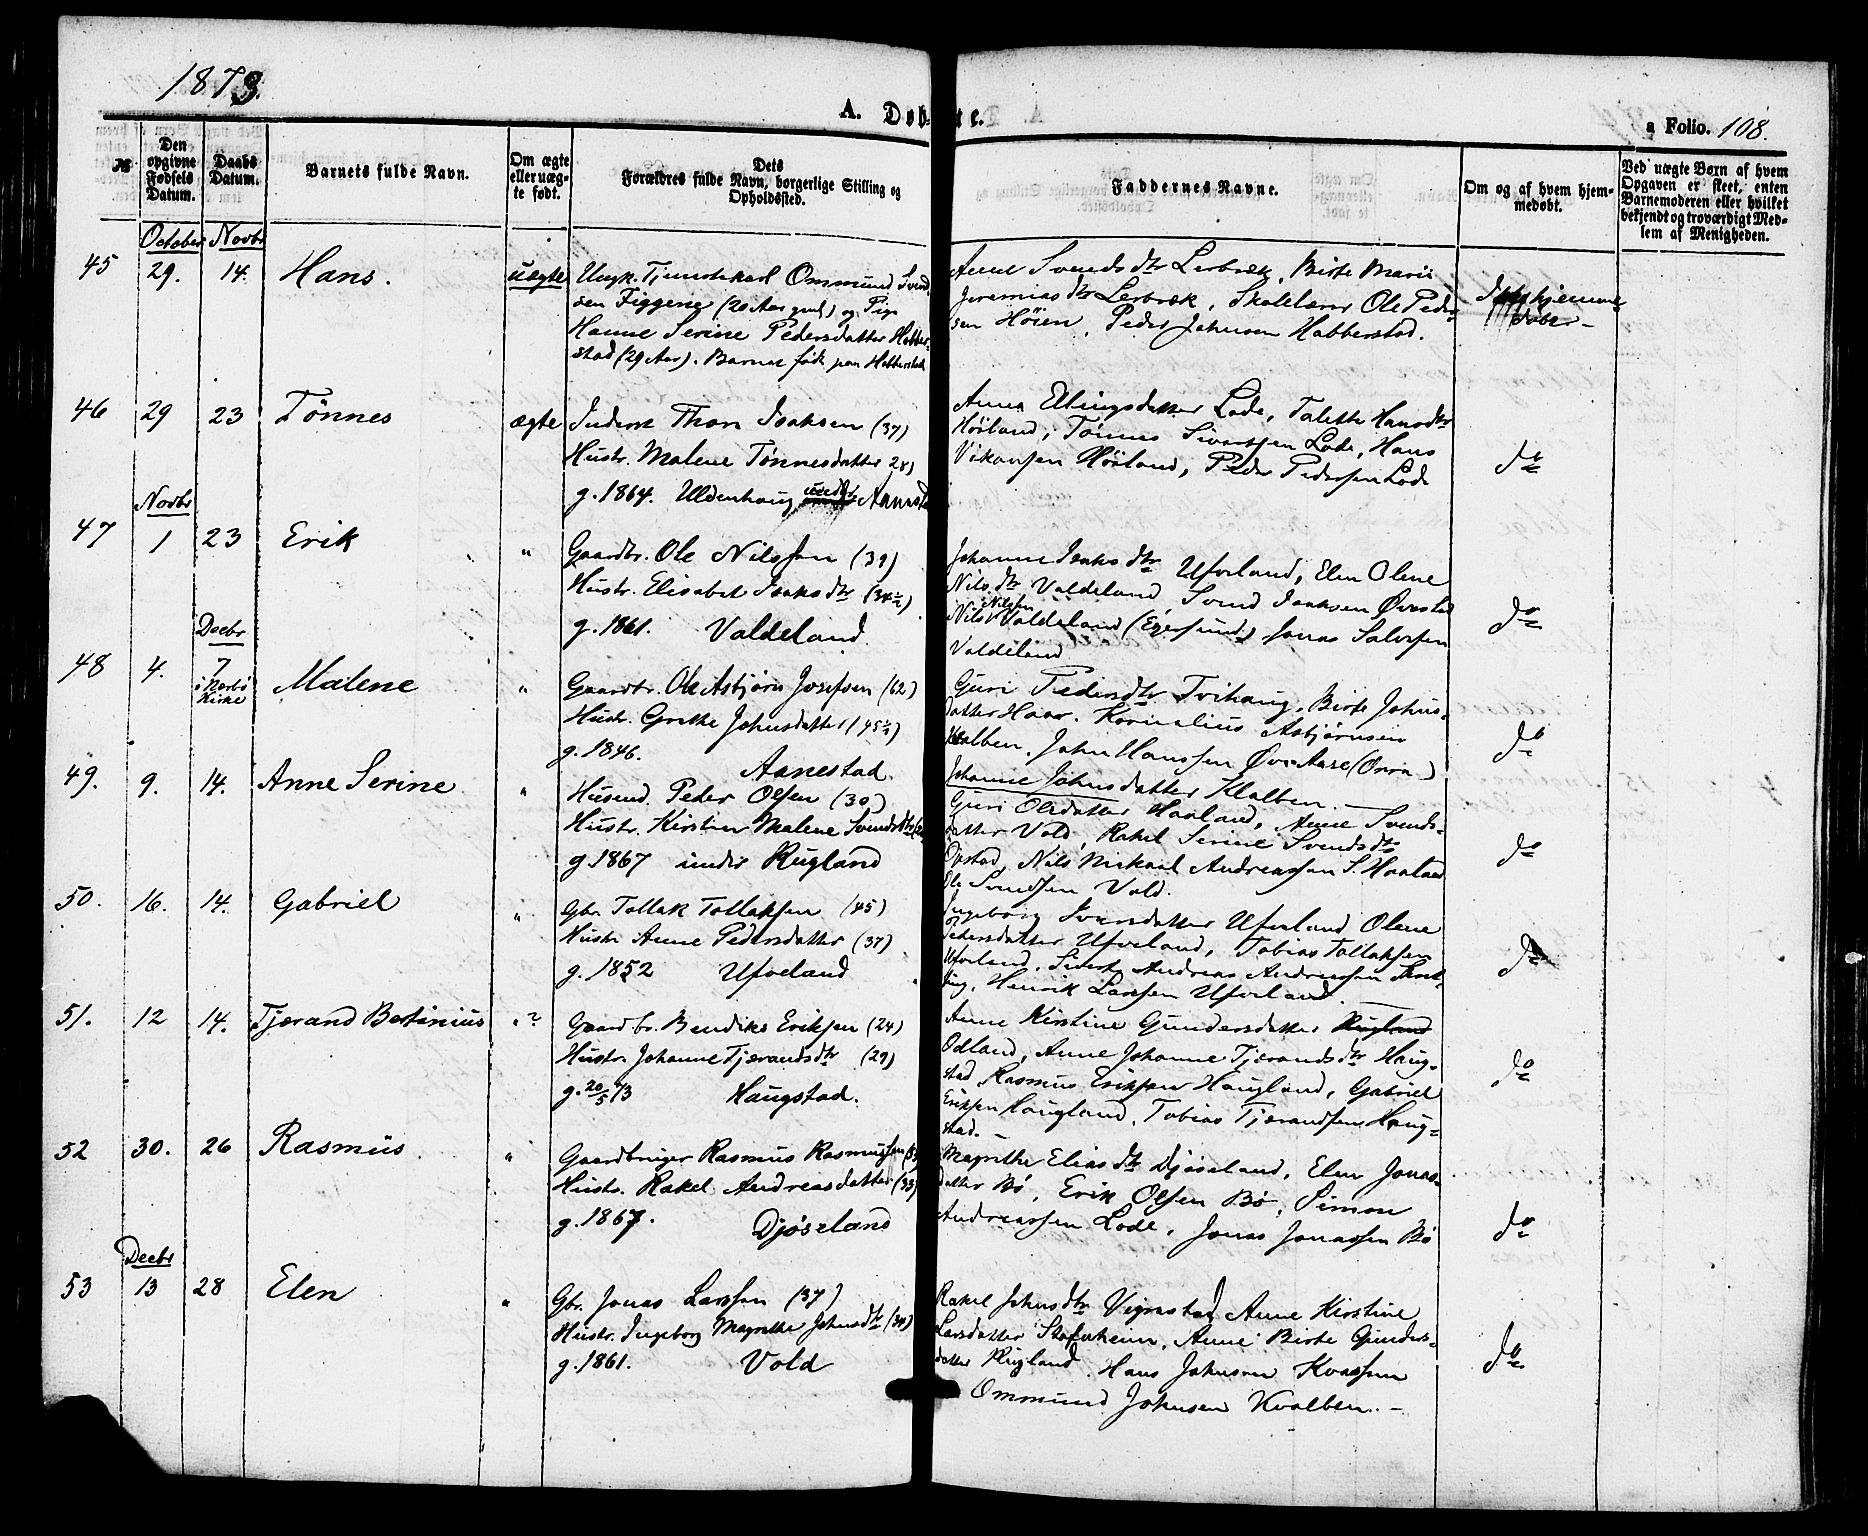 1873.
A. Døbte.
a Folio. 108.
№
Den opgivne Fødsels Datum.
Daabs Datum.
Barnets fulde Navn.
Om ægte eller uægte født.
Dets Forældres fulde Navn, borgerlige Stilling og Opholdssted.
Faddernes Navne.
Om og af hvem hjemmedøbt.
Ved uægte Børn af hvem Opgaven er skeet, enten Barnemoderen eller hvilket bekjendt og troværdigt Medlem af Menigheden.
October Novbr
45 29. 14. Hans. uægte
Ungk. Tjenestekarl Ommund Svend
sen Figgene (20 Aar gml) og Pige
Hanne Serine Pedersdatter Hobber
stad (29 Aar). Barnet født paa Hobberstad
Anne Svendsdtr Lerbræk, Birte Marie
Jeremiasdtr Lerbræk, Skolelærer Ole Peder
sen Høien, Peder Johnsen Hobberstad.
hjemme
døbt
46 29 23 Tønnes ægte
Inderst Thore Isaksen (37)
Hustr. Malene Tønnesdatter 28)
g. 1864. Uldenhaug under Aanest
Anna Ellingsdatter Lode, Talette Hansdtr
Høiland, Tønnes Sivertsen Lode, Hans
Vikansen Høiland, Peder Pederssen Lode
do
Novbr
47 1 23 Erik "
Gaardbr. Ole Nilssen (39)
Hustr. Elisabet Isaksdtr (34½)
g. 1861. Valdeland.
Johanne Isaksdtr Ufveland, Elen Olene
Nilsdtr Valdeland Svend Isaksen Øvrstad
Nils Nilssen Valdeland (Egersund) Jonas Salvesen
Valdeland
do
Decbr
48 4. 7 Malene "
i Nærbø
Kirke
Gaardbr. Ole Asbjørn Josefsen (62)
Hustr. Grethe Johnsdatter (45½)
g. 1846. Aanestad.
Guri Pedersdtr Tvihaug, Birte Johns-
datter Haar. Kornelius Asbjørnsen
Kvalben, John Hanssen Øvr. Aase (Ogna)
Johanne Johnsdatter Kvalben.
do
49. 9. 14. Anne Serine "
Husmd. Peder Olsen (30)
Hustr. Kirsten Malene Svendsdtr
g. 1867 under Rugland
Guri Olsdatter Haaland, Anne Svends-
datter Vold, Rakel Serine Svendsdtr
Opstad, Nils Mikael Andreassen S. Haaland
Ole Svendsen Vold.
do
50. 16. 14. Gabriel "
Gbr. Tollak Tollaksen (45)
Hustr Anne Pedersdatter (37)
g. 1852 Ufveland
Ingeborg Iversdatter Ufveland Olene
Pedersdatter Ufveland, Tobias Tollaksen
Ufveland, Sivert Andreas Andreassen
Henrik Larssen Ufveland.
do
51. 12 14. Tjerand Bertinius "?
Gaardbr. Bendiks Eriksen (24)
Hustr. Johanne Tjerandsdtr (29)
g. 20/5 73 Haugstad.
Anne Kirstine Gundersdatter Rugland
Odland, Anne Johanne Tjerandsdtr Haug-
stad Rasmus Eriksen Haugland, Gabriel
Eriksen Haugland, Tobias Tjerandsen Haug-
stad.
do
52 30. 26 Rasmus "
Gaardbruger Rasmus Rasmussen
Hustr. Rakel Andreasdatter (33)
g. 1867. Djøseland
Magrethe Eliasdtr Djøseland, Elen Jonas-
datter Bø, Erik Olsen Bø, Simon
Andreassen Lode, Jonas Jonassen Bø
do
Decbr
53 13 28 Elen "
Gbr. Jonas Larssen (37)
Hustr. Ingeborg Magrethe Johnsdtr (34)
g. 1861. Vold
Rakel Johnsdtr Vigrestad Anne Kirstine
Larsdatter Stokheim, Anne Birte Gunders-
datter Rugland. Hans Johnsen Kvassem
Ommund Johnsen Kvalben.
do